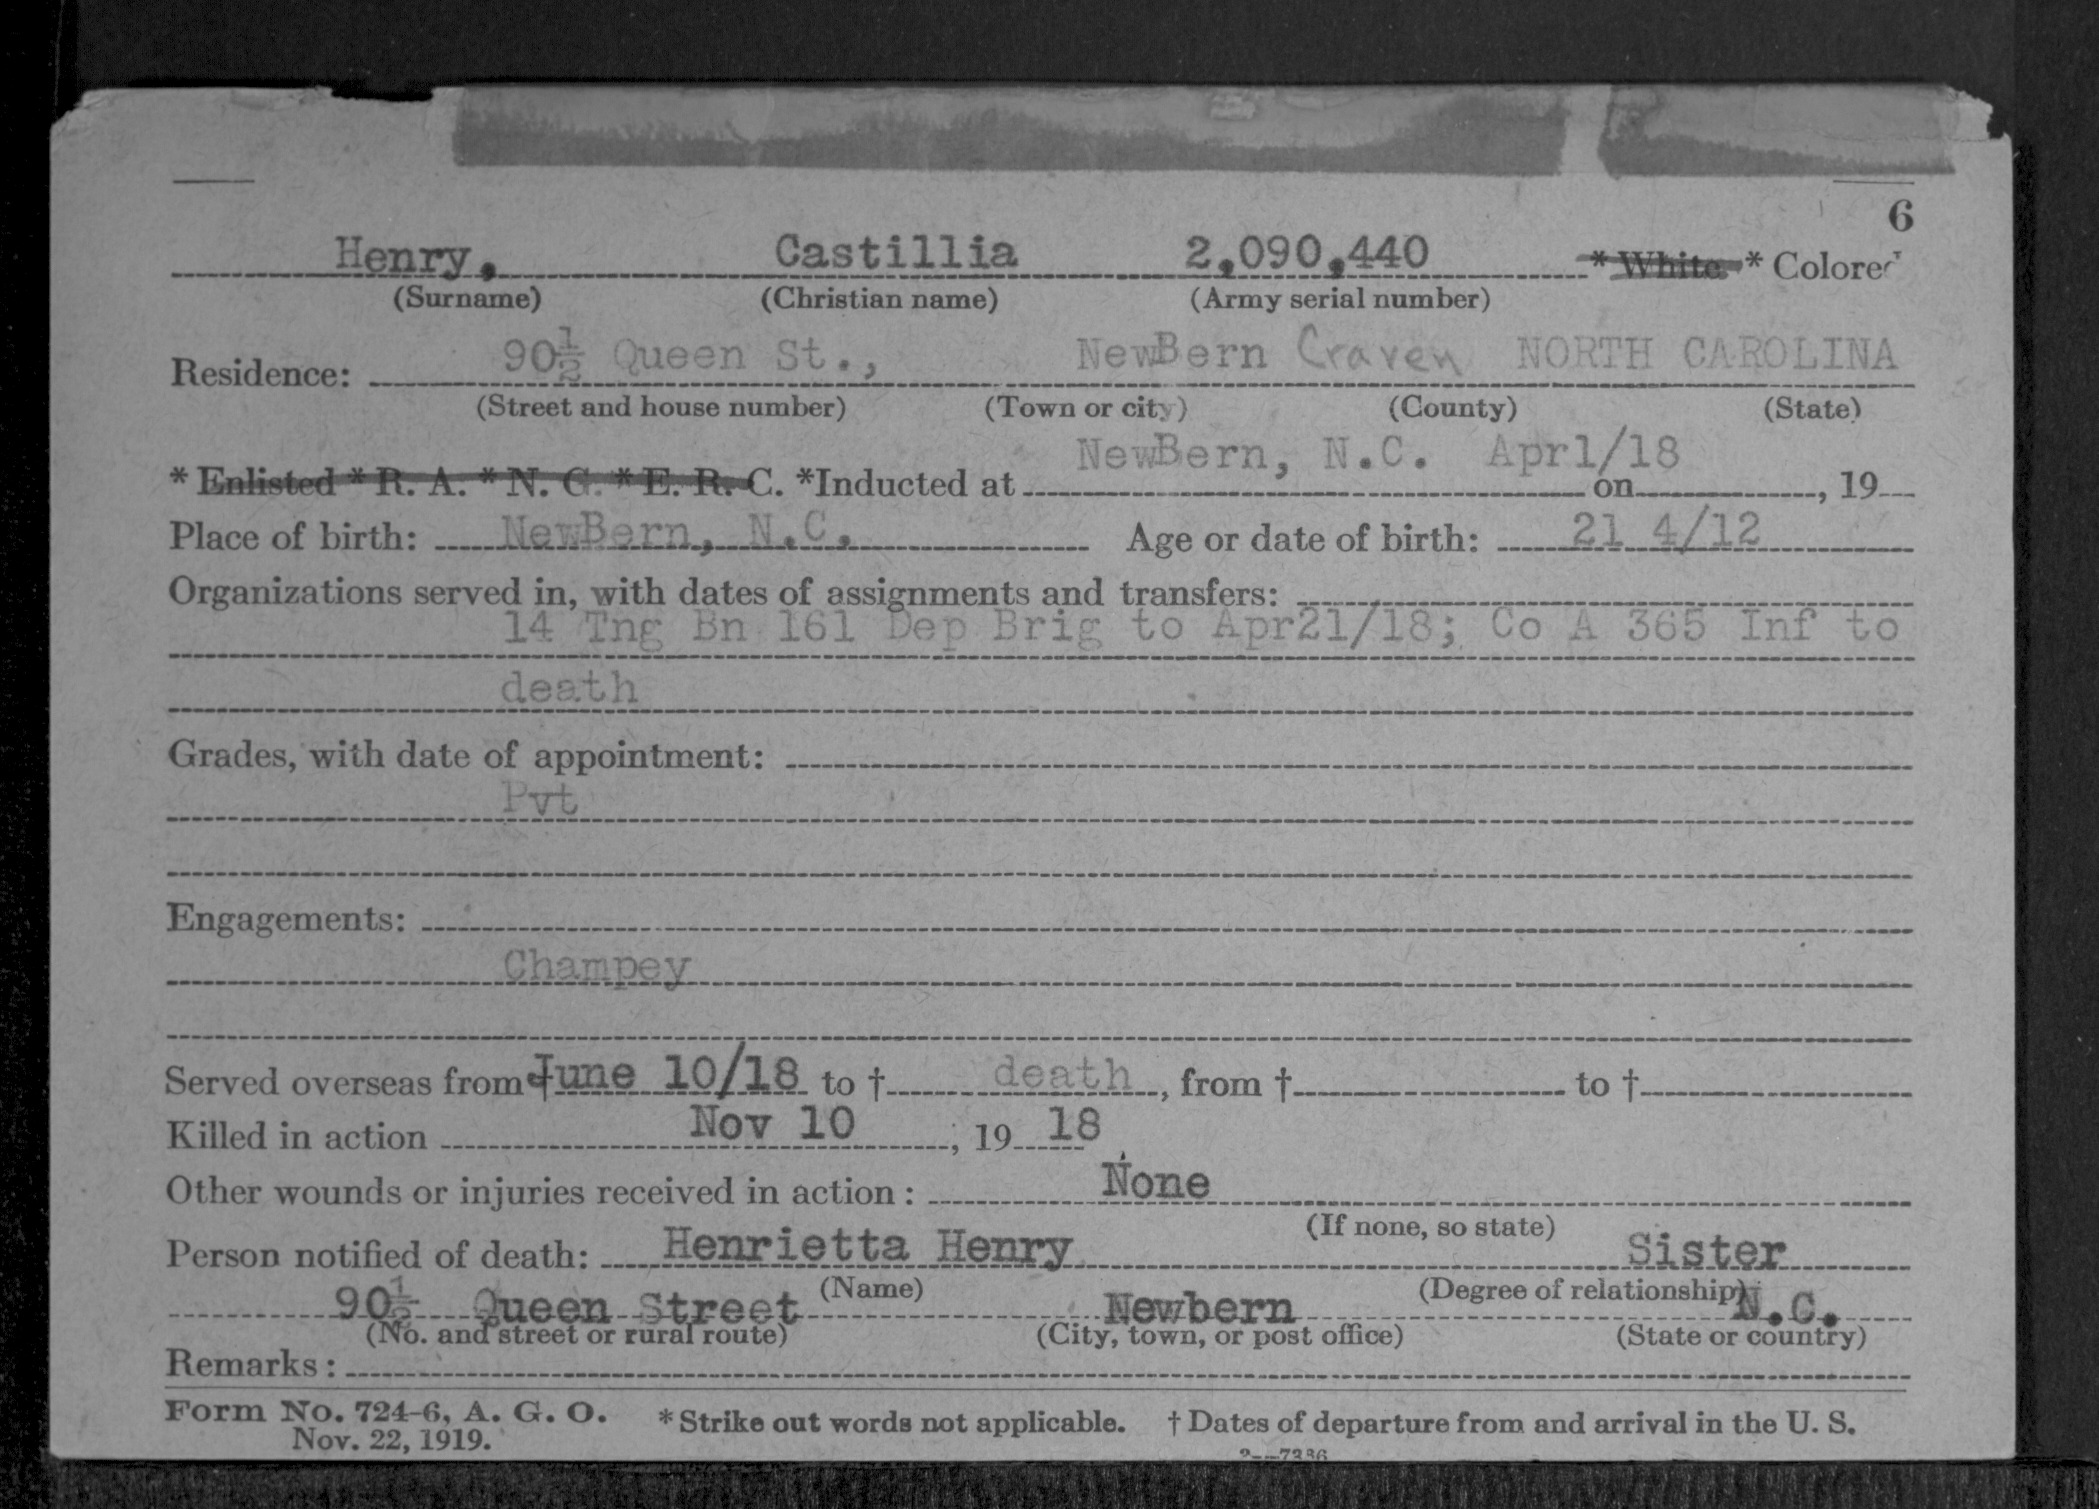 6
Henry, Castillia 2,090,440 * White * Colored
(Surname) (Christian name) (Army serial number)
Residence: 90½ Queen St., NewBern Craven NORTH CAROLINA
(Street and house number) (Town or city) (County) (State)
NewBern, N.C. Apr1/18
* Enlisted * R. A. * N. G. * E. R. C. *Inducted at on , 19
Place of birth: NewBern, N.C. Age or date of birth: 21 4/12
Organizations served in, with dates of assignments and transfers:
14 Tng Bn 161 Dep Brig to Apr21/18; Co A 365 Inf to
death
Grades, with date of appointment:
Pvt
Engagements:
Champey
Served overseas from June 10/18 to † death, from † to †
Killed in action Nov 10, 19 18
Other wounds or injuries received in action: None
(If none, so state)
Person notified of death: Henrietta Henry Sister
(Name) (Degree of relationship)
90½ Queen Street Newbern N.C.
(No. and street or rural route) (City, town, or post office) (State or country)
Remarks:
Form No. 724-6, A. G. O. * Strike out words not applicable. † Dates of departure from and arrival in the U. S.
Nov. 22, 1919.